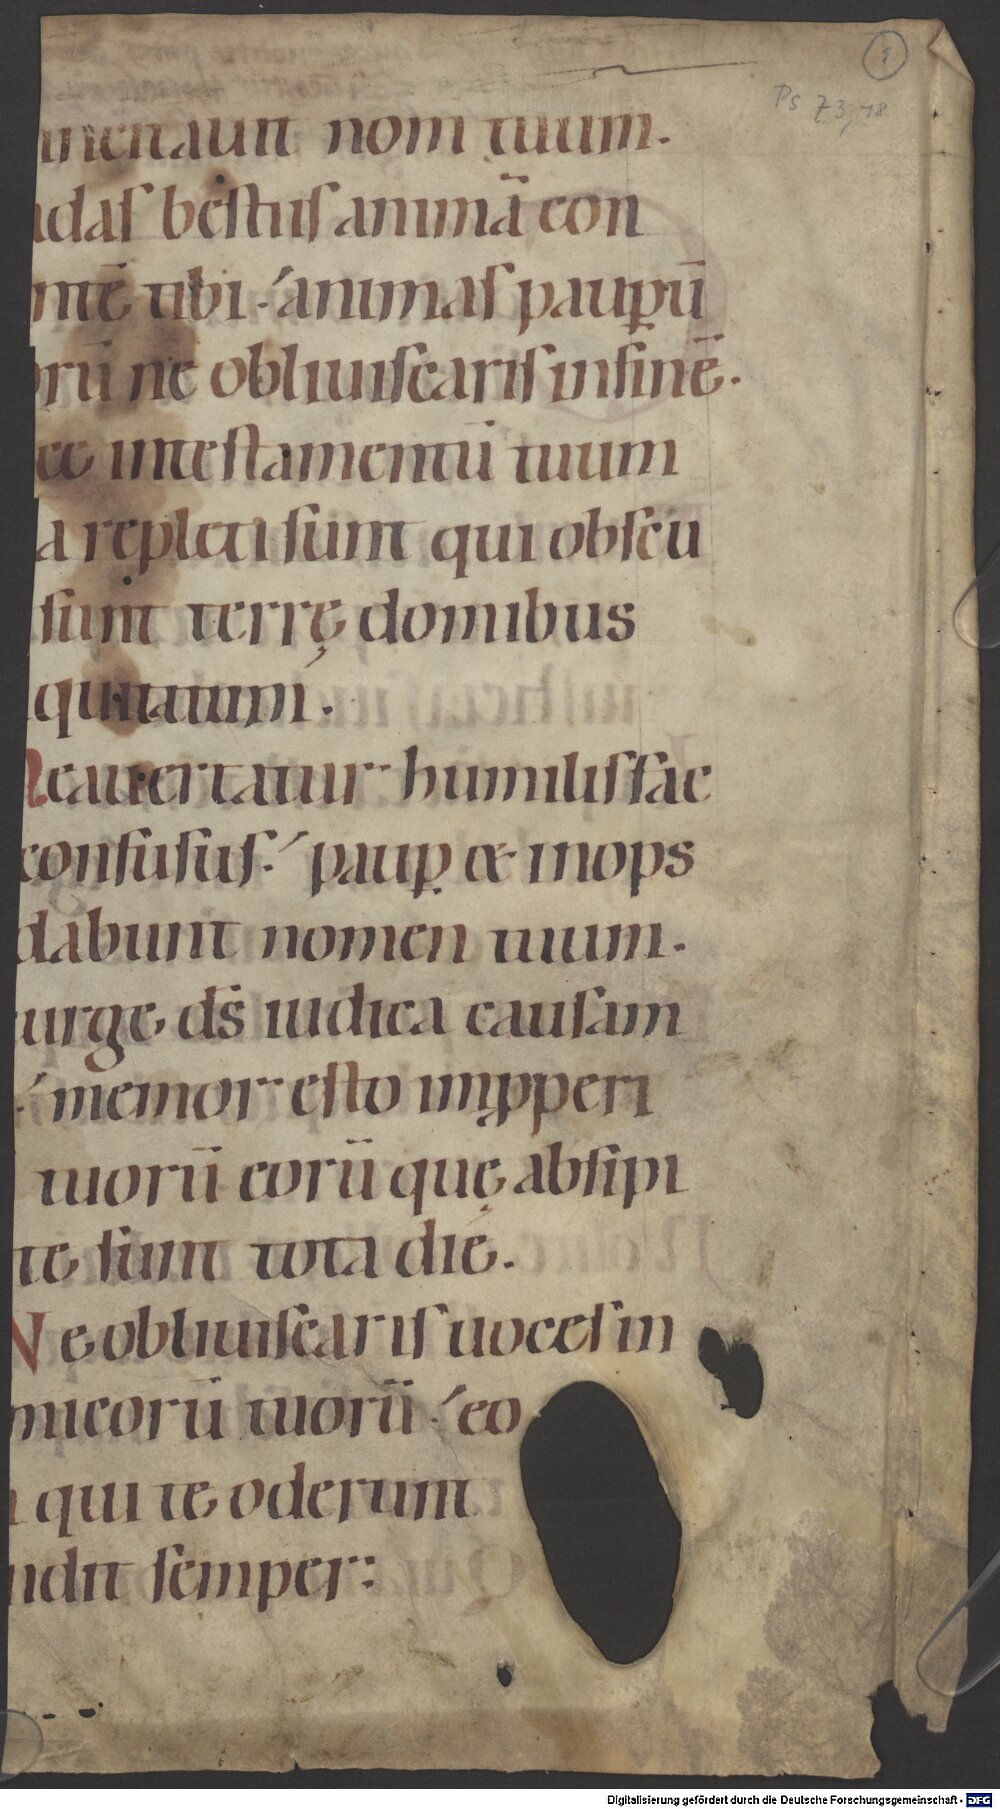 1
Ps 73,18
incitauit nom tuum.
adas bestiis animā con
mtē tibi ·́ animas paup̱ū
orū ne obliuiscaris in finē.
ce in testamentū tuum
a repleti sunt qui obscu
sunt terrę domibus
iquitatum.
Ne auertatur humilis fac
confusus ·́ paup̱ & inops
dabunt nomen tuum.
urge d̄s iudica causam
·́ memor esto impp̱eri
tuorū eorū quę ab sipi
te sunt tota die.
Ne obliuiscaris uoces in
micorū tuorū ·́ eo
qui te oderunt
ndit semper:
Digitalisierung gefördert durch die Deutsche Forschungsgemeinschaft - DFG